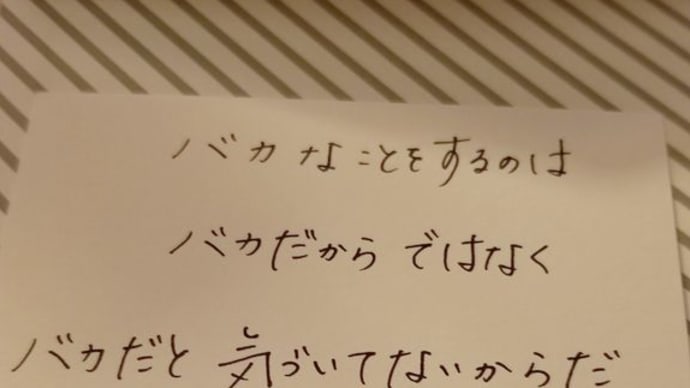 バカなことをするのは
バカだからではなく
バカだと気づいてないからだ